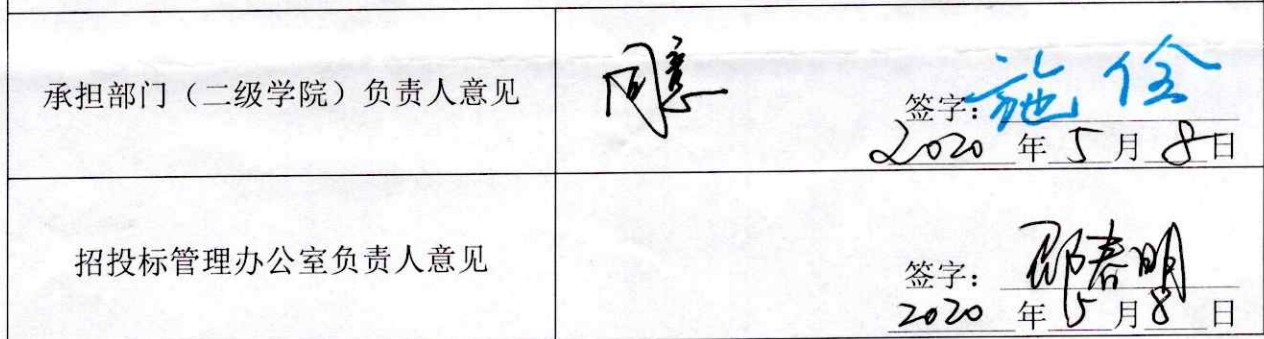 承担部门（二级学院）负责人意见
同意
签字：施俭
2020年5月8日
招投标管理办公室负责人意见
签字：邵春明
2020年5月8日